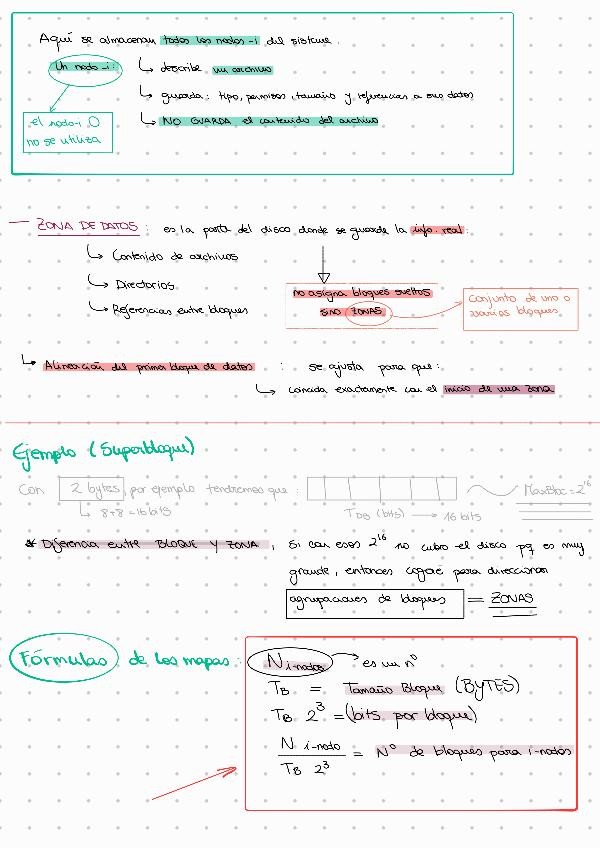 Aquí se almacenan todos los nodos-i del sistema.
Un nodo-i: ↳ describe un archivo
↳ guarda: tipo, permisos, tamaño y referencias a sus datos
↳ NO GUARDA el contenido del archivo
el nodo-i 0
no se utiliza
— ZONA DE DATOS: es la parte del disco donde se guarda la info. real:
↳ Contenido de archivos
↳ Directorios
↳ Referencias entre bloques
no asigna bloques sueltos
sino ZONAS
conjunto de uno o
varios bloques
↳ Alineación del primer bloque de datos : se ajusta para que:
↳ coincida exactamente con el inicio de una zona
Ejemplo (Superbloque)
Con 2 bytes, por ejemplo tendremos que: MaxBloc = 2^16
↳ 8+8 = 16 bits
T_DB (bits) → 16 bits
* Diferencia entre BLOQUE Y ZONA, Si con esos 2^16 no cubro el disco pq es muy
grande, entonces cogeré para direccionar
agrupaciones de bloques = ZONAS
Fórmulas de los mapas:
N i-nodos → es un nº
T_B = Tamaño Bloque (BYTES)
T_B 2^3 = (bits por bloque)
N i-nodo / T_B 2^3 = Nº de bloques para i-nodos